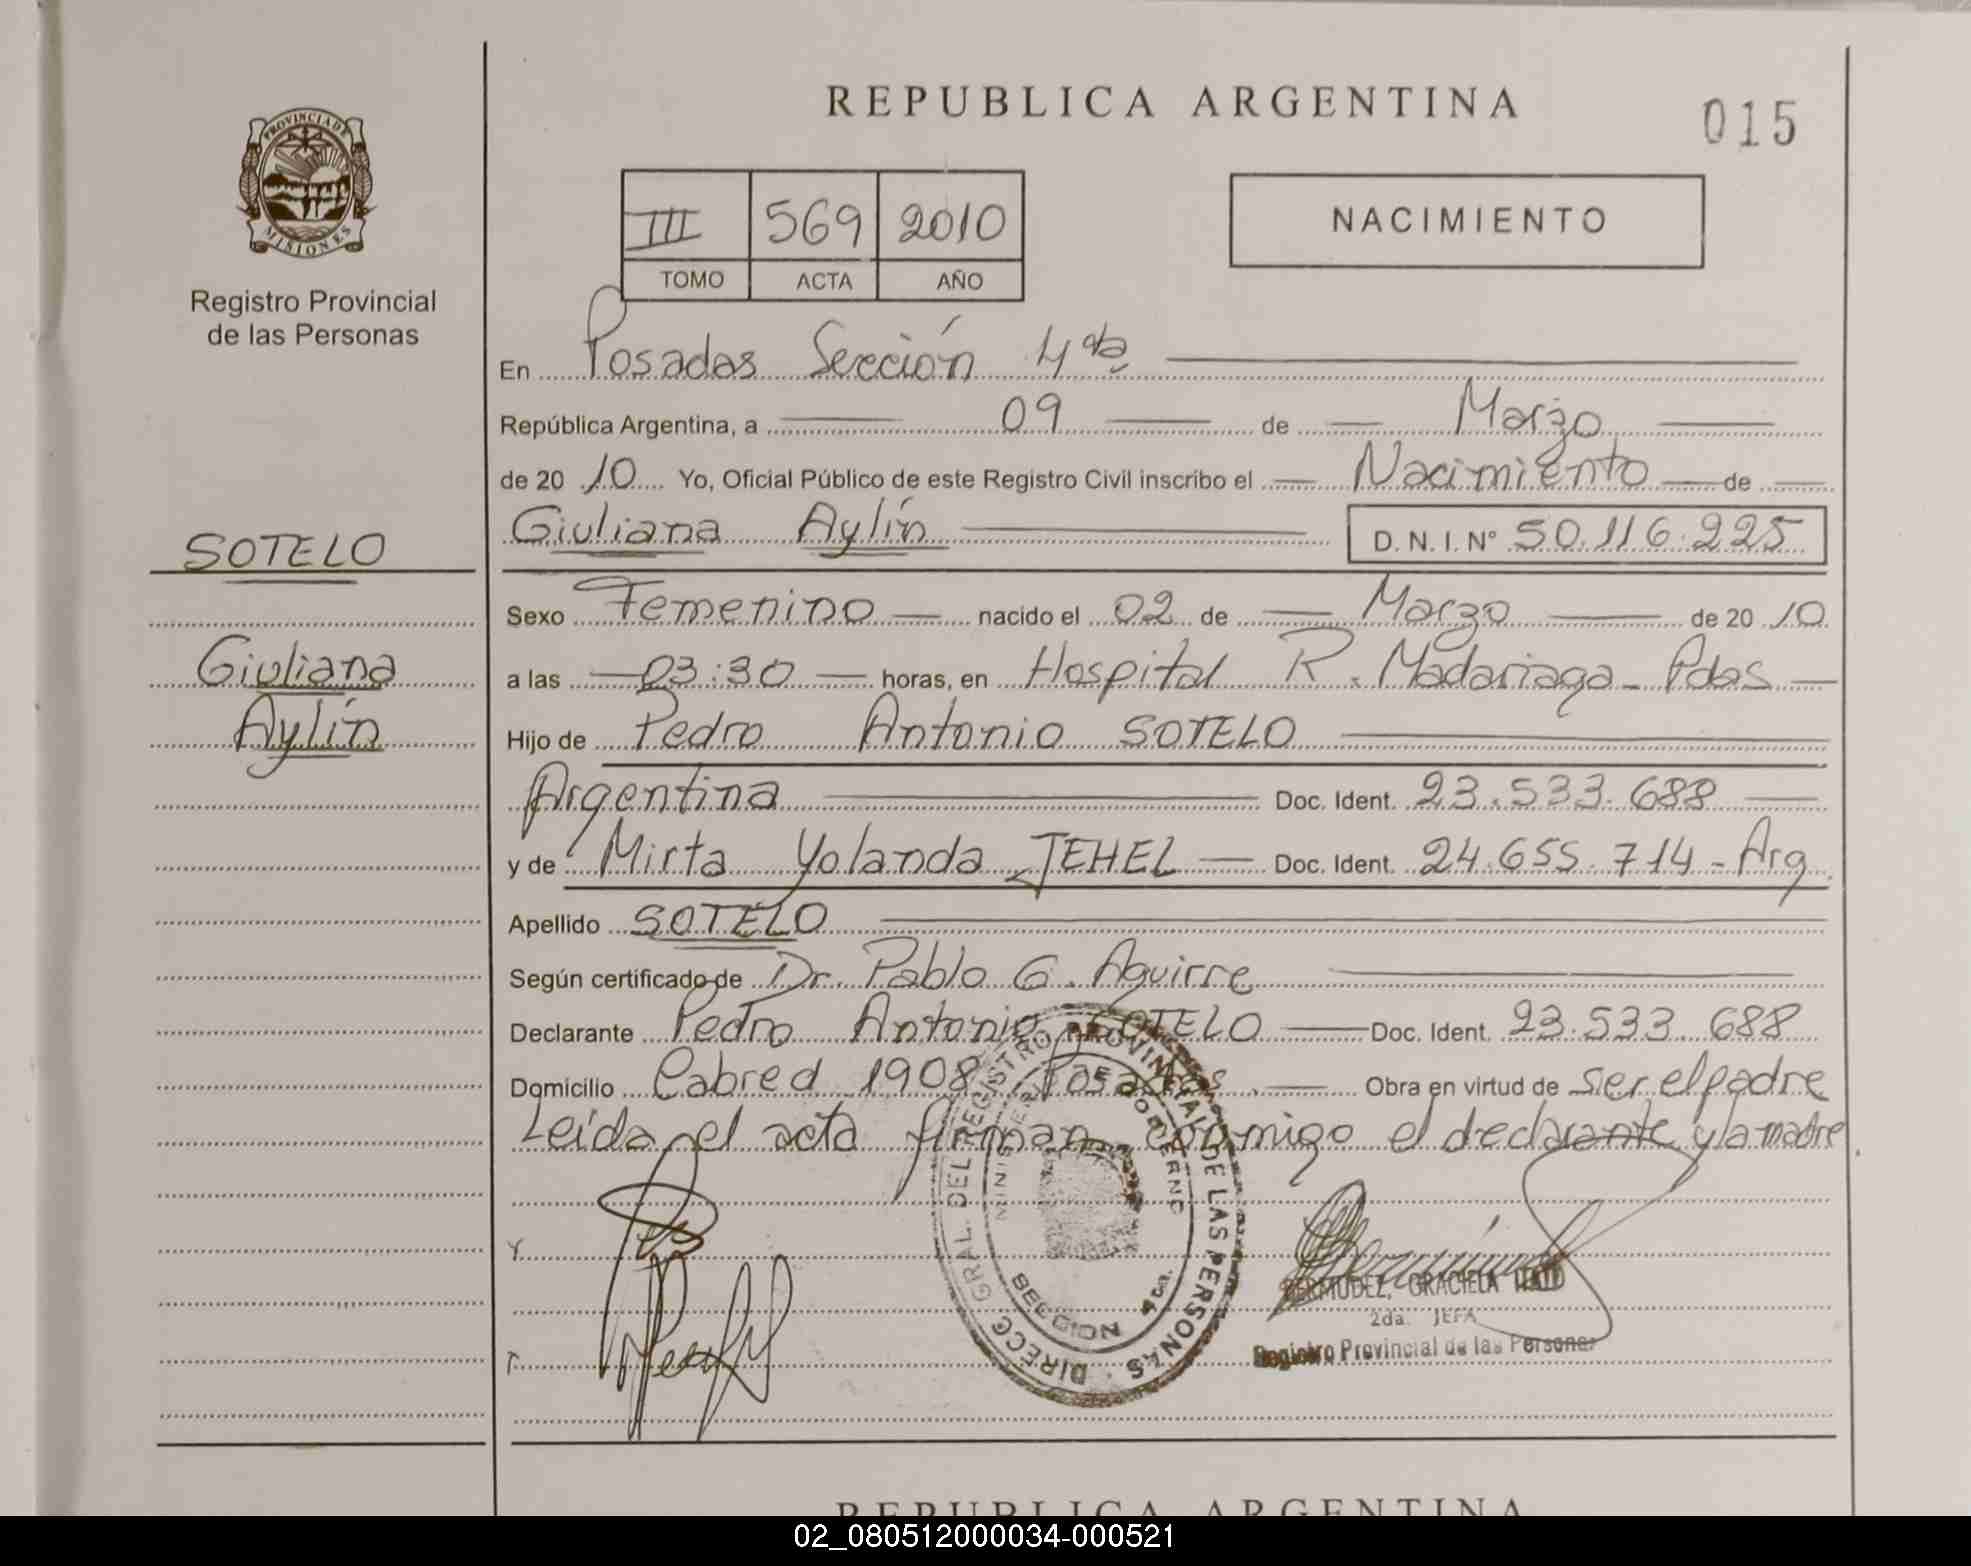 REPUBLICA ARGENTINA
015
PROVINCIA DE
MISIONES
Registro Provincial
de las Personas
III 569 2010
TOMO ACTA AÑO
NACIMIENTO
En Posadas Sección 4ta
República Argentina, a 09 de Marzo
de 20 10 Yo, Oficial Público de este Registro Civil inscribo el Nacimiento de
Giuliana Aylín D.N.I. N° 50.116.225
SOTELO
Giuliana
Aylín
Sexo Femenino nacido el 02 de Marzo de 20 10
a las 03:30 horas, en Hospital R. Madariaga - Pdas
Hijo de Pedro Antonio SOTELO
Argentina Doc. Ident. 23.533.688
y de Mirta Yolanda JEHEL Doc. Ident. 24.655.714 - Arg
Apellido SOTELO
Según certificado de Dr. Pablo G. Aguirre
Declarante Pedro Antonio SOTELO Doc. Ident. 23.533.688
Domicilio Cabred 1908 Posadas. Obra en virtud de ser el padre
Leída el acta firman conmigo el declarante y la madre
DIRECC GRAL. DEL REGISTRO PROVINCIAL DE LAS PERSONAS
MINISTERIO DE GOBIERNO
SECCION 4ta.
BERMUDEZ, GRACIELA
2da. JEFA
Registro Provincial de las Personas
REPUBLICA ARGENTINA
02_080512000034-000521